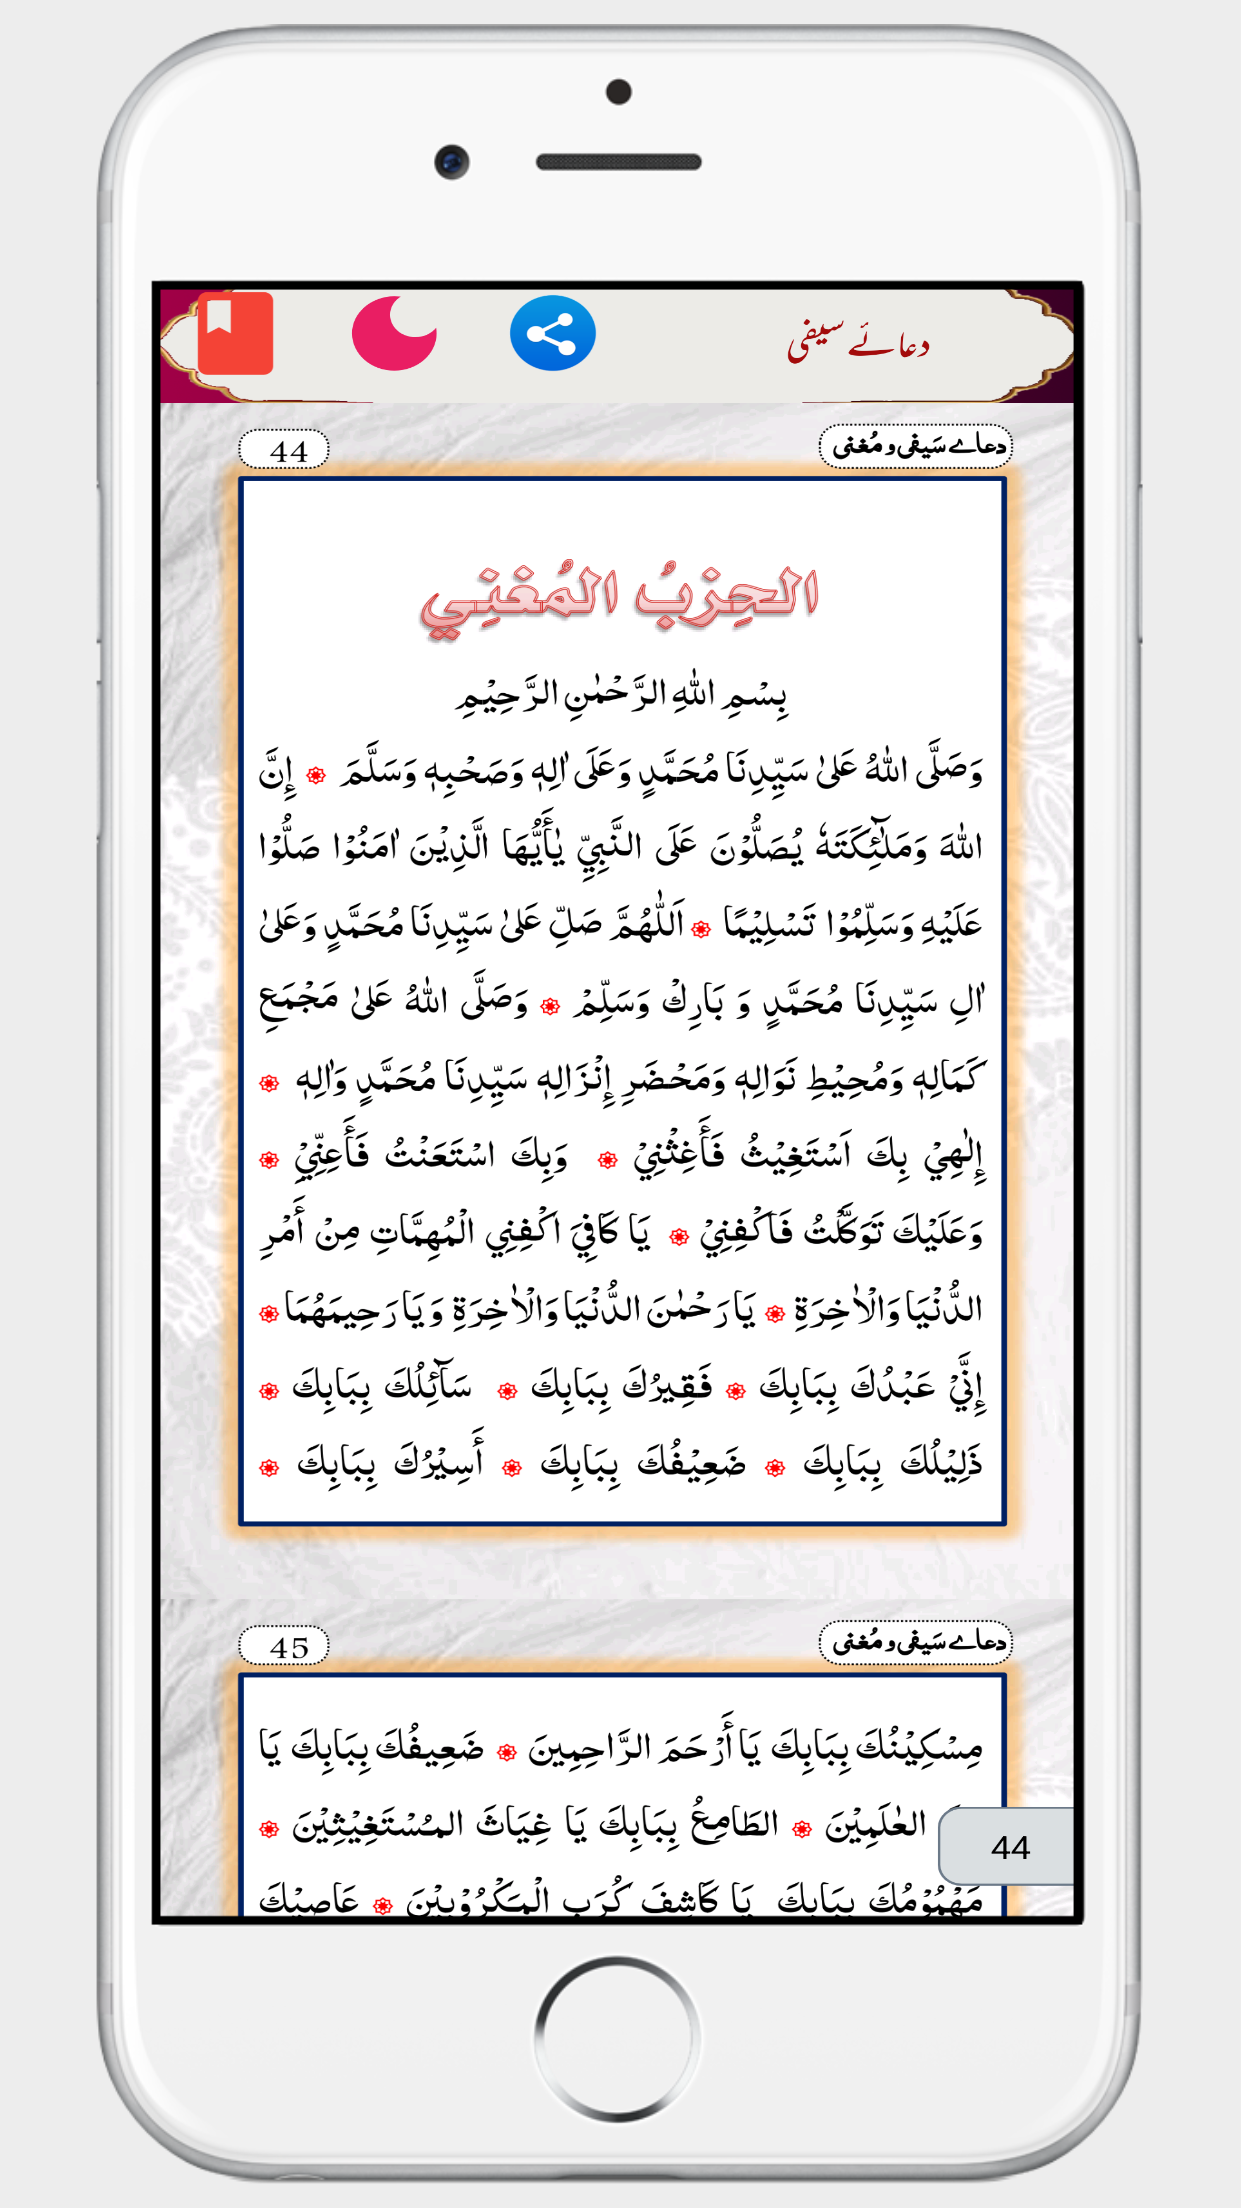 دعائے سیفی
دعاے سَیفی و مُغنی
44
الحِزْبُ المُغنِي
بِسْمِ اللّٰهِ الرَّحْمٰنِ الرَّحِيْمِ
وَصَلَّى اللّٰهُ عَلىٰ سَيِّدِنَا مُحَمَّدٍ وَعَلَى اٰلِهٖ وَصَحْبِهٖ وَسَلَّمَ ۞ إِنَّ
اللّٰهَ وَمَلٰٓئِكَتَهٗ يُصَلُّوْنَ عَلَى النَّبِيِّ يٰأَيُّهَا الَّذِيْنَ اٰمَنُوْا صَلُّوْا
عَلَيْهِ وَسَلِّمُوْا تَسْلِيْمًا ۞ اَللّٰهُمَّ صَلِّ عَلىٰ سَيِّدِنَا مُحَمَّدٍ وَعَلىٰ
اٰلِ سَيِّدِنَا مُحَمَّدٍ وَ بَارِكْ وَسَلِّمْ ۞ وَصَلَّى اللّٰهُ عَلىٰ مَجْمَعِ
كَمَالِهٖ وَمُحِيْطِ نَوَالِهٖ وَمَحْضَرِ إِنْزَالِهٖ سَيِّدِنَا مُحَمَّدٍ وَاٰلِهٖ ۞
إِلٰهِيْ بِكَ اَسْتَغِيْثُ فَأَغِثْنِيْ ۞ وَبِكَ اسْتَعَنْتُ فَأَعِنِّيْ ۞
وَعَلَيْكَ تَوَكَّلْتُ فَاكْفِنِيْ ۞ يَا كَافِيَ اكْفِنِي الْمُهِمَّاتِ مِنْ أَمْرِ
الدُّنْيَا وَالْاٰخِرَةِ ۞ يَا رَحْمٰنَ الدُّنْيَا وَالْاٰخِرَةِ وَ يَا رَحِيمَهُمَا ۞
إِنِّيْ عَبْدُكَ بِبَابِكَ ۞ فَقِيرُكَ بِبَابِكَ ۞ سَآئِلُكَ بِبَابِكَ ۞
ذَلِيْلُكَ بِبَابِكَ ۞ ضَعِيْفُكَ بِبَابِكَ ۞ أَسِيْرُكَ بِبَابِكَ ۞
دعاے سَیفی و مُغنی
45
مِسْكِيْنُكَ بِبَابِكَ يَا أَرْحَمَ الرَّاحِمِينَ ۞ ضَعِيفُكَ بِبَابِكَ يَا
العٰلَمِيْنَ ۞ الطَامِعُ بِبَابِكَ يَا غِيَاثَ المُسْتَغِيْثِيْنَ ۞
44
مَهْمُوْمُكَ بِبَابِكَ يَا كَاشِفَ كُرَبِ الْمَكْرُوْبِيْنَ ۞ عَاصِيْكَ